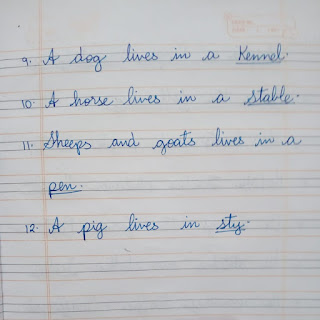 9. A dog lives in a Kennel.
10. A horse lives in a stable.
11. Sheeps and goats lives in a
pen.
12. A pig lives in sty.